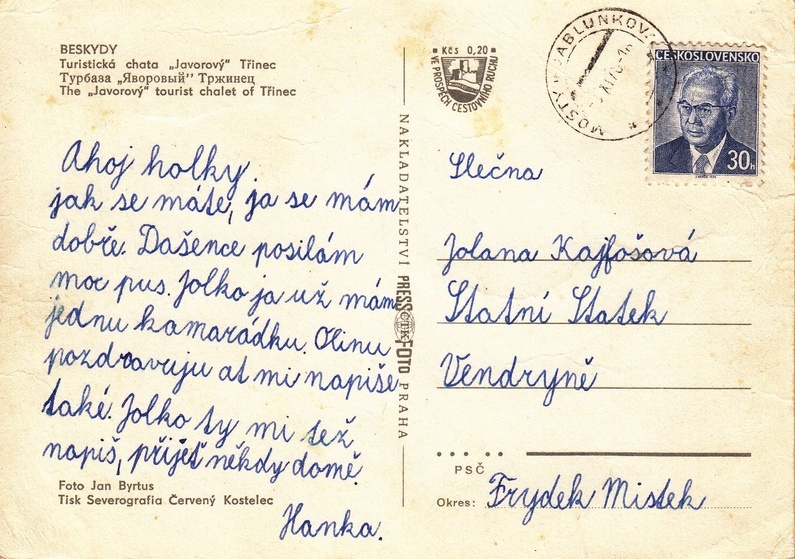 BESKYDY
Turistická chata „Javorový" Třinec
Турбаза „Яворовый" Тржинец
The „Javorový" tourist chalet of Třinec
Ahoj holky.
jak se máte, ja se mám
dobře. Dašence posilám
moc pus. Jolko ja už mám
jednu kamarádku. Olinu
pozdravuju at mi napiše
také. Jolko ty mi tež
napiš, přijeť někdy domě.
Hanka.
Foto Jan Byrtus
Tisk Severografia Červený Kostelec
NAKLADATELSTVÍ PRESSFOTO PRAHA
ČTK
Kčs 0,20
VE PROSPĚCH CESTOVNÍHO RUCHU
MOSTY U JABLUNKOVA
ČESKOSLOVENSKO
30h
Slečna
Jolana Kajfošová
Statní Statek
Vendryně
PSČ
Okres: Frydek Mistek